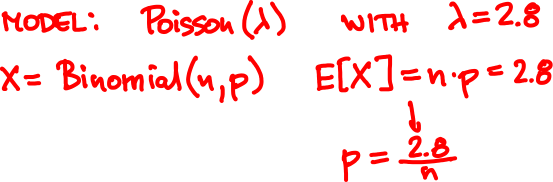 MODEL: Poisson(λ) WITH λ=2.8
X= Binomial(n,p) E[X]=n·p=2.8
↓
p = 2.8/n